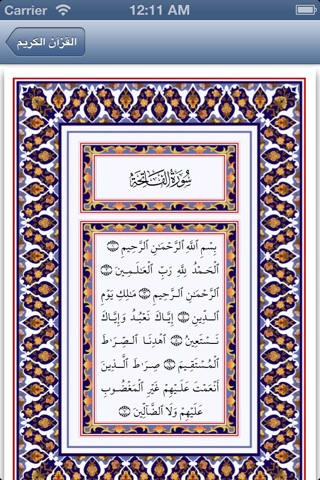 Carrier 12:11 AM
القرآن الكريم
سُورَةُ الفَاتِحَةِ
بِسْمِ اللَّهِ الرَّحْمَٰنِ الرَّحِيمِ ۝
الْحَمْدُ لِلَّهِ رَبِّ الْعَالَمِينَ ۝
الرَّحْمَٰنِ الرَّحِيمِ ۝ مَالِكِ يَوْمِ
الدِّينِ ۝ إِيَّاكَ نَعْبُدُ وَإِيَّاكَ
نَسْتَعِينُ ۝ اهْدِنَا الصِّرَاطَ
الْمُسْتَقِيمَ ۝ صِرَاطَ الَّذِينَ
أَنْعَمْتَ عَلَيْهِمْ غَيْرِ الْمَغْضُوبِ
عَلَيْهِمْ وَلَا الضَّالِّينَ ۝